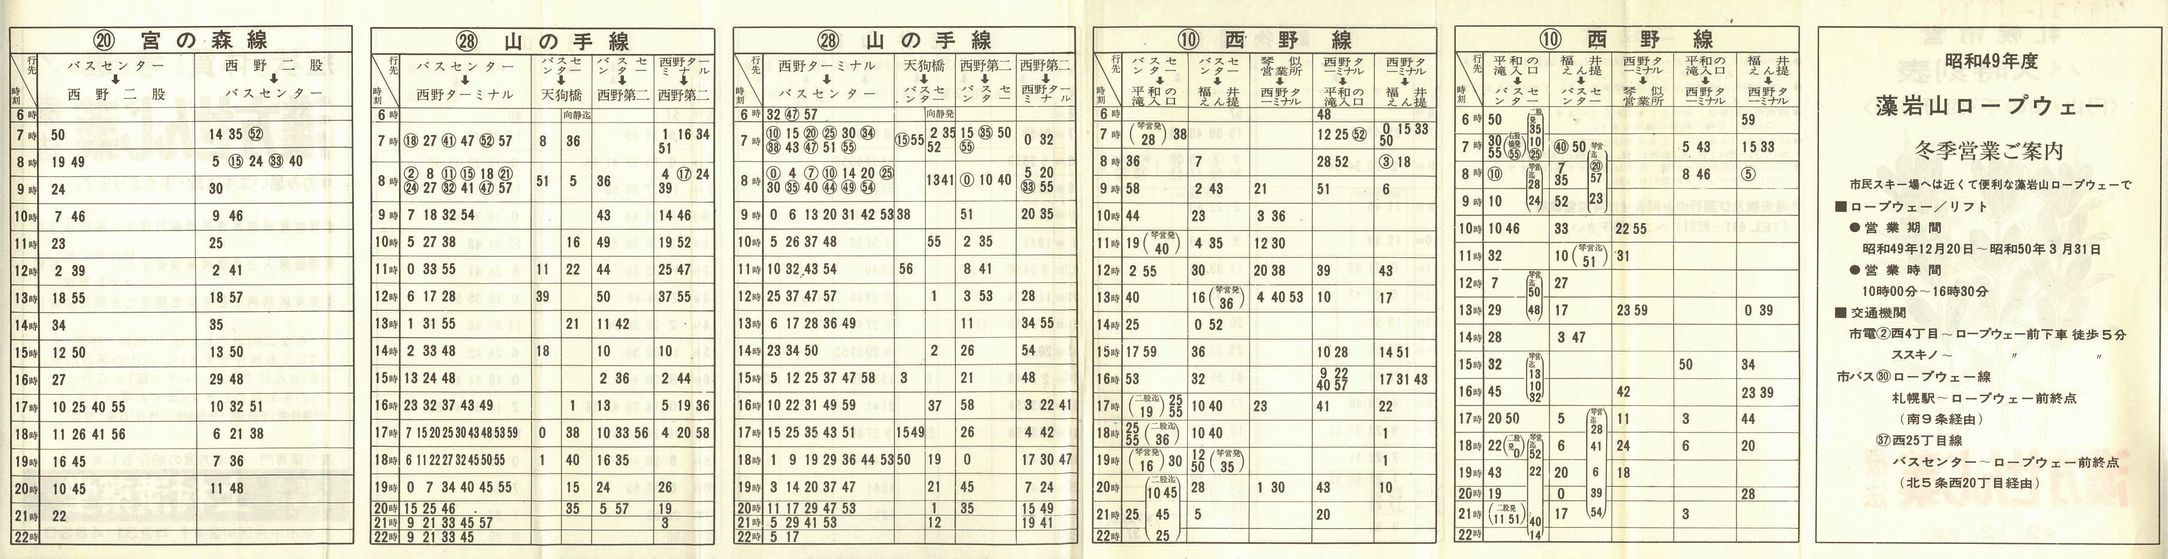 ⑳ 宮の森線
行先
時刻
バスセンター
↓
西野二股
西野二股
↓
バスセンター
6時
7時 50 14 35 ㊾
8時 19 49 5 ⑮ 24 ㉝ 40
9時 24 30
10時 7 46 9 46
11時 23 25
12時 2 39 2 41
13時 18 55 18 57
14時 34 35
15時 12 50 13 50
16時 27 29 48
17時 10 25 40 55 10 32 51
18時 11 26 41 56 6 21 38
19時 16 45 7 36
20時 10 45 11 48
21時 22
22時
㉘ 山の手線
行先
時刻
バスセンター
↓
西野ターミナル
バスセンター
↓
天狗橋
バスセンター
↓
西野第二
西野ターミナル
↓
西野第二
6時 向静迄
7時 ⑱ 27 ㊶ 47 52 57 8 36 1 16 34 51
8時 ② 8 ⑪ ⑮ 18 ㉑ ㉔ 27 ㉜ 41 ㊼ 57 51 5 36 4 ⑰ 24 39
9時 7 18 32 54 43 14 46
10時 5 27 38 16 49 19 52
11時 0 33 55 11 22 44 25 47
12時 6 17 28 39 50 37 55
13時 1 31 55 21 11 42
14時 2 33 48 18 10 10
15時 13 24 48 2 36 2 44
16時 23 32 37 43 49 1 13 5 19 36
17時 7 15 20 25 30 43 48 53 59 0 38 10 33 56 4 20 58
18時 6 11 22 27 32 45 50 55 1 40 16 35
19時 0 7 34 40 45 55 15 24 26
20時 15 25 46 35 5 57 19
21時 9 21 33 45 57 3
22時 9 21 33 45
㉘ 山の手線
行先
時刻
西野ターミナル
↓
バスセンター
天狗橋
↓
バスセンター
西野第二
↓
バスセンター
西野第二
↓
西野ターミナル
6時 32 ㊼ 57 向静発
7時 ⑩ 15 ⑳ ㉕ 30 ㉞ ㊳ 43 ㊼ 51 55 ⑮ 55 2 35 52 15 ㉟ 50 55 0 32
8時 ⓪ 4 ⑦ ⑩ 14 20 ㉕ 30 ㉟ 40 ㊹ ㊾ 54 13 41 ⓪ 10 40 5 20 ㉝ 55
9時 0 6 13 20 31 42 53 38 51 20 35
10時 5 26 37 48 55 2 35
11時 10 32 43 54 56 8 41
12時 25 37 47 57 1 3 53 28
13時 6 17 28 36 49 11 34 55
14時 23 34 50 2 26 54
15時 5 12 25 37 47 58 3 21 48
16時 10 22 31 49 59 37 58 3 22 41
17時 15 25 35 43 51 15 49 26 4 42
18時 1 9 19 29 36 44 53 50 19 0 17 30 47
19時 3 14 20 37 47 21 45 7 24
20時 11 17 29 47 53 1 35 15 49
21時 5 29 41 53 12 19 41
22時 5 17
⑩ 西野線
行先
時刻
バスセンター
↓
平和の滝入口
バスセンター
↓
福井えん提
琴似営業所
↓
西野ターミナル
西野ターミナル
↓
平和の滝入口
西野ターミナル
↓
福井えん提
6時 48
7時 (琴営発 28) 38 12 25 52 0 15 33 50
8時 36 7 28 52 ③ 18
9時 58 2 43 21 51 6
10時 44 23 3 36
11時 19 (琴営発 40) 4 35 12 30
12時 2 55 30 20 38 39 43
13時 40 16 (琴営発 36) 4 40 53 10 17
14時 25 0 52
15時 17 59 36 10 28 14 51
16時 53 32 9 22 40 57 17 31 43
17時 (二股迄 19) 25 55 10 40 23 41 22
18時 25 55 (二股迄 36) 10 40 1
19時 (琴営発 16) 30 12 50 (琴営発 35) 1
20時 (二股迄 10 45) 28 1 30 43 10
21時 25 45 5 20
22時 25
⑩ 西野線
行先
時刻
平和の滝入口
↓
バスセンター
福井えん提
↓
バスセンター
西野ターミナル
↓
琴似営業所
平和の滝入口
↓
西野ターミナル
福井えん提
↓
西野ターミナル
6時 50 二股発 35 59
7時 30 55 10 ㉕ ㊵ 50 琴営迄 5 43 15 33
8時 ⑩ 琴営迄 28 7 35 ⑳ 57 8 46 ⑤
9時 10 24 52 23
10時 10 46 33 22 55
11時 32 10 (琴営迄 51) 31
12時 7 琴営迄 50 27
13時 29 48 17 23 59 0 39
14時 28 3 47
15時 32 琴営迄 13 50 34
16時 45 10 32 42 23 39
17時 20 50 5 琴営迄 28 11 3 44
18時 22 (二股発 0) 琴営迄 52 6 41 24 6 20
19時 43 22 20 6 18
20時 19 0 39 28
21時 (二股発 11 51) 40 17 54 3
22時 14
昭和49年度
藻岩山ロープウェー
冬季営業ご案内
市民スキー場へは近くて便利な藻岩山ロープウェーで
■ロープウェー／リフト
●営業期間
昭和49年12月20日～昭和50年3月31日
●営業時間
10時00分～16時30分
■交通機関
市電②西4丁目～ロープウェー前下車 徒歩5分
ススキノ～ 〃 〃
市バス㉚ロープウェー線
札幌駅～ロープウェー前終点
(南9条経由)
㊲西25丁目線
バスセンター～ロープウェー前終点
(北5条西20丁目経由)